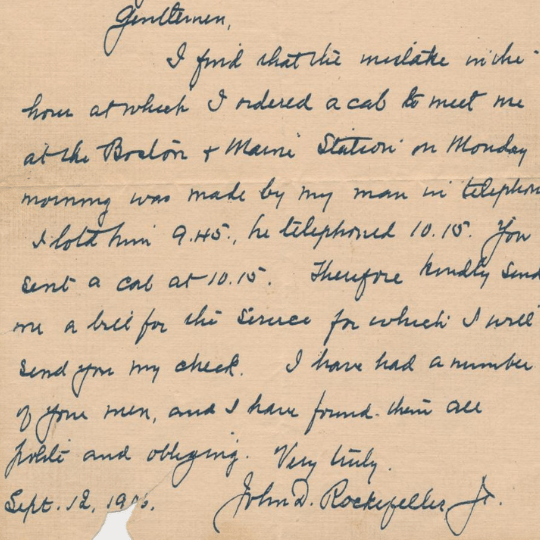 Gentlemen,
I find that the mistake in the
hour at which I ordered a cab to meet me
at the Boston + Maine Station on Monday
morning was made by my man in telephon
I told him 9.45., he telephoned 10.15. You
sent a cab at 10.15. Therefore kindly send
me a bill for the service for which I will
send you my check. I have had a number
of your men, and I have found them all
polite and obliging. Very truly.
Sept. 12, 1906. John D. Rockefeller Jr.